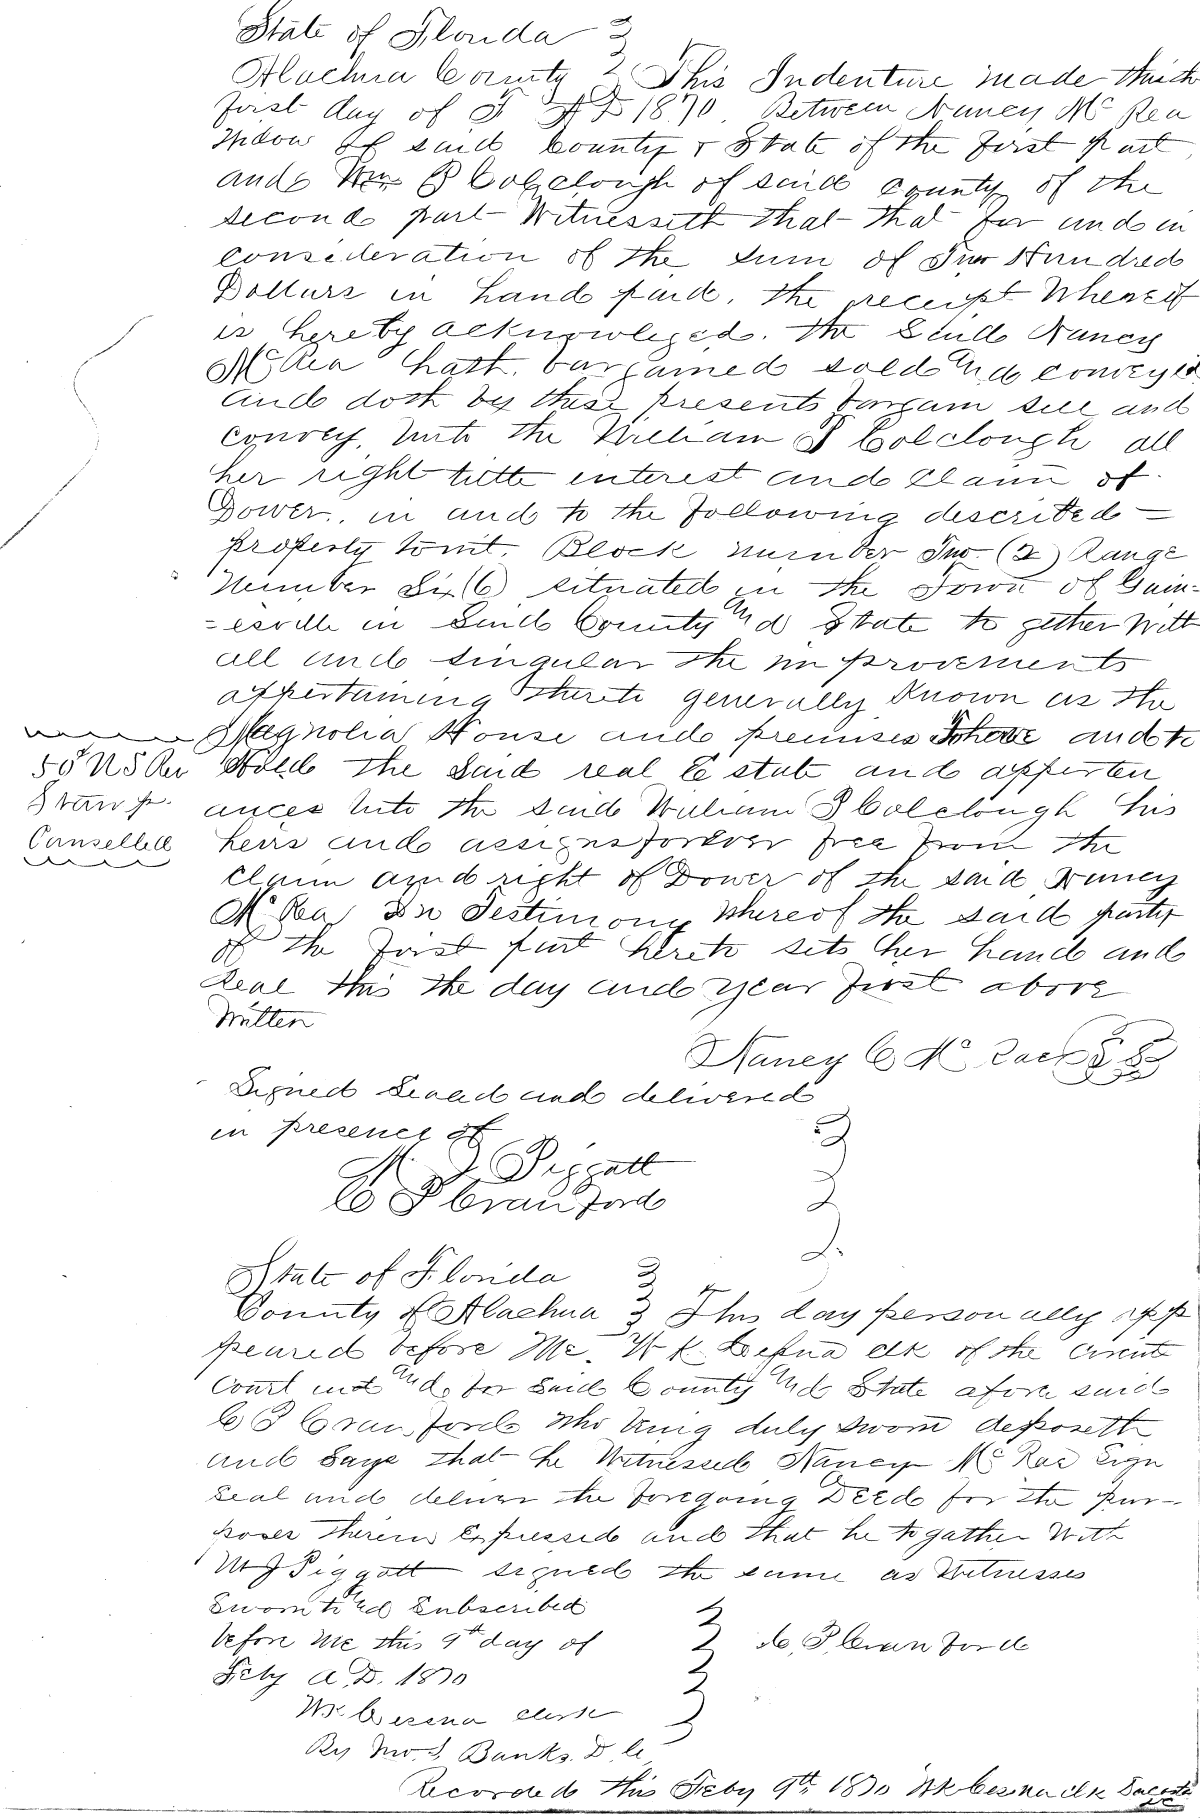 State of Florida
Alachua County This Indenture made this
first day of F AD 1870. Between Nancy Mc Rea
Widow of said County & State of the first part,
and Wm P Colclough of said county of the
second part Witnesseth that that for and in
consideration of the sum of Two Hundred
Dollars in hand paid, the receipt Whereof
is hereby acknowleged. the Said Nancy
Mc Rea hath, bargained sold And conveyed
and doth by these presents bargain sell and
convey, unto the William P Colclough all
her right title interest and Claim of
Dower., in and to the following described =
property towit. Block number Two (2) Range
Number Six (6) situated in the Town of Gain=
=esville in Said County And State to gether With
all and singular the im provements
appertaining thereto generally Known as the
Magnolia House and premises To have and to
50c US Rev
Stamp.
Canselled
Hold the Said real Estate and apperten
ances Unto the said William P Colclough his
heirs and assigns forever free from the
claim and right of Dower of the said Nancy
Mc Rea In Testimony Whereof the said party
of the first part hereto sets her hand and
seal this the day and year first above
Written
Nancy C Mc Rae
Signed Sealed and delivered
in presence of
M J Piggott
C P Crawford
State of Florida
County of Alachua This day personally app
peared before Me. W K Cessna clk of the Circuit
Court in And for Said County And State afore said
C P Crawford Who being duly sworn deposeth
and Says that he Witnessed Nancy Mc Rae Sign
Seal and deliver the foregoing DEEd for the pur-
poses therein Expressed and that he to gather With
M J Piggott signed the same as Witnesses
Sworn to And Subscribed
before Me this 9th day of
C, P, Crawford
Feby A.D. 1870
WK Cessna clerk
By Jno. S, Banks. D. C
Recorded this Feby 9th 1870 WK Cessna clk